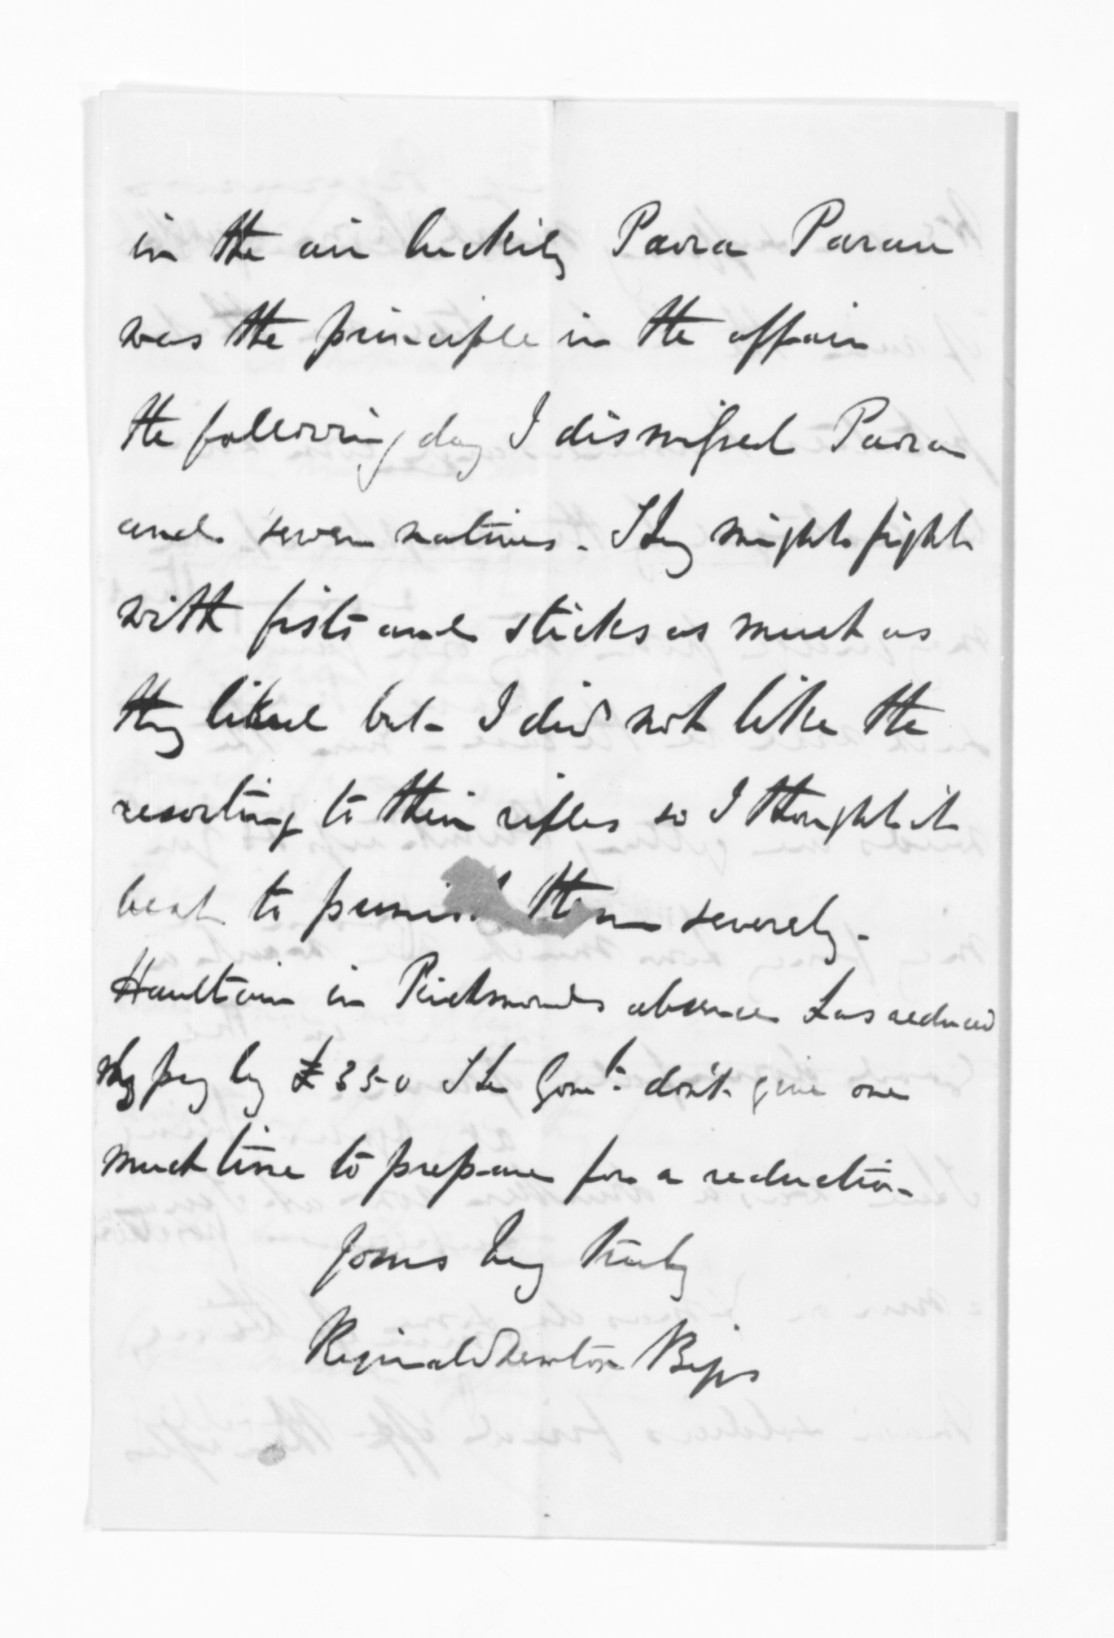 in the air luckily Paora Parau
was the principle in the affair
the following day I dismissed Paora
and seven natives. They might fight
with fists and sticks as much as
they liked but I did not like the
resorting to their rifles so I thought it
best to punish them severely.
Haultain in Richmonds absence has reduced
my pay by £350 The Govt. don't give one
much time to prepare for a reduction
Yours very truly
Reginald Newton Biggs